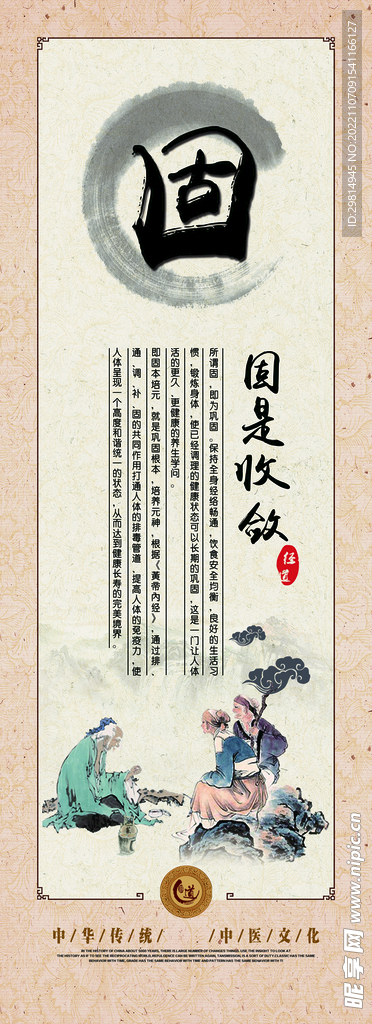 固
固是收敛
经道
所谓固，即为巩固。保持全身经络畅通，饮食安全均衡，良好的生活习
惯，锻炼身体，使已经调理的健康状态可以长期的巩固，这是一门让人体
活的更久，更健康的养生学问。
即固本培元，就是巩固根本，培养元神，根据《黄帝内经》，通过排、
通、调、补、固的共同作用打通人体的排毒管道，提高人体的免疫力，使
人体呈现一个高度和谐统一的状态，从而达到健康长寿的完美境界。
道
中/华/传/统/ /中/医/文/化
IN THE HISTORY OF CHINA ABOUT 5000 YEARS, THERE IS LARGE NUMBER OF CHANGES THINGS. USE THE INSIGHT TO LOOK AT
THE HISTORY AS IF TO SEE THE RECIPROCATING WORLD, RUFULGENCE CAN BE WRITTEN AGAIN, TANSMISSION, IS A SORT OF DUTY. CLASSIC HAS THE SAME
BEHAVIOR WITH TIME, GRASS HAS THE SAME BEHAVIOR WITH TIME AND PATTERN HAS THE SAME BEHAVIOR WITH TI
ID:29814945 NO:20221107091541166127
昵享网 www.nipic.cn